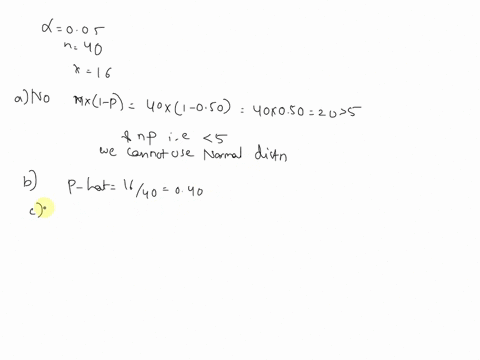 α=0.05
n=40
x=16
a) No n×(1-P) = 40×(1-0.50) = 40×0.50=20>5
& np i.e <5
we cannot use Normal distn
b) P-hat= 16/40 = 0.40
c)